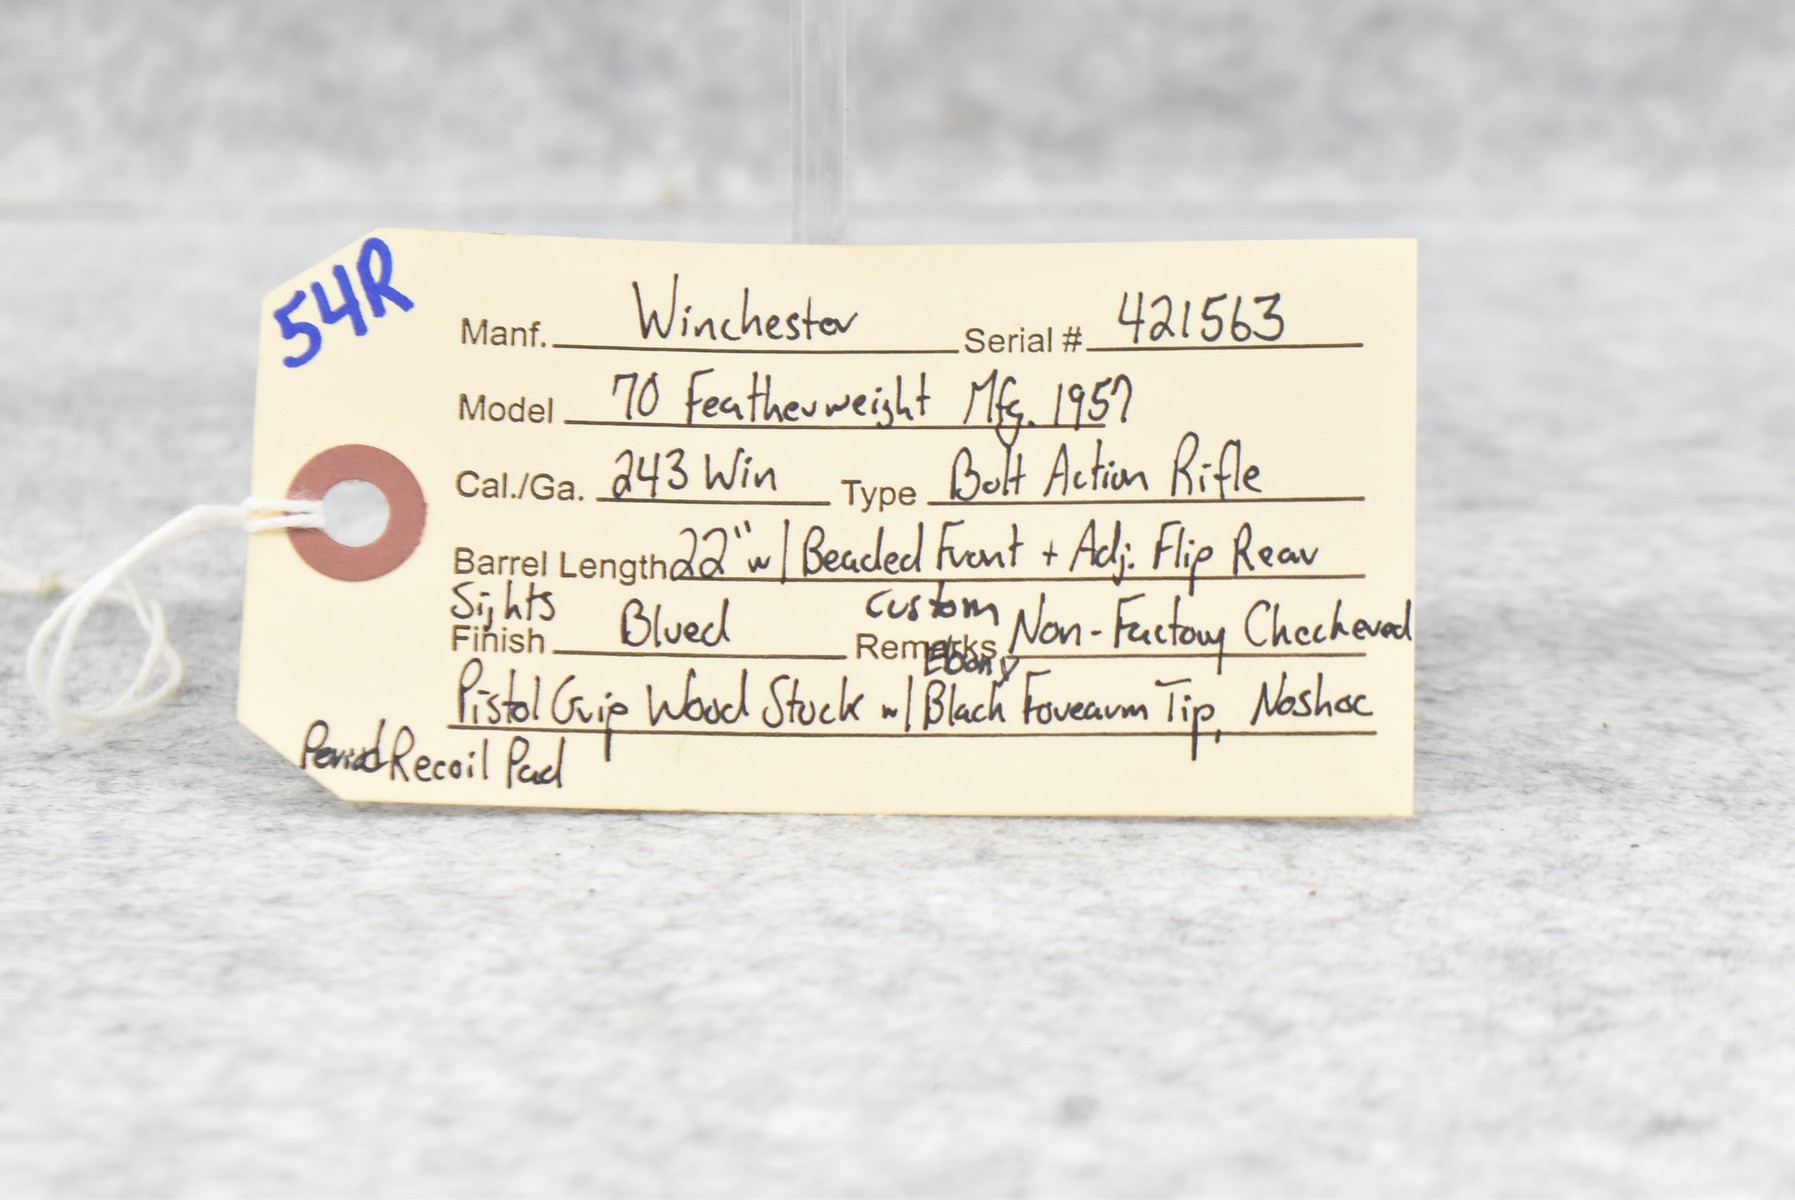 54R
Manf. Winchester Serial # 421563
Model 70 Featherweight Mfg. 1957
Cal./Ga. 243 Win Type Bolt Action Rifle
Barrel Length 22" w/ Beaded Front + Adj. Flip Rear
Sights
Finish Blued Remarks Custom Non-Factory Checkered
Pistol Grip Wood Stock w/ Ebony Black Forearm Tip, Noshoc
Period Recoil Pad